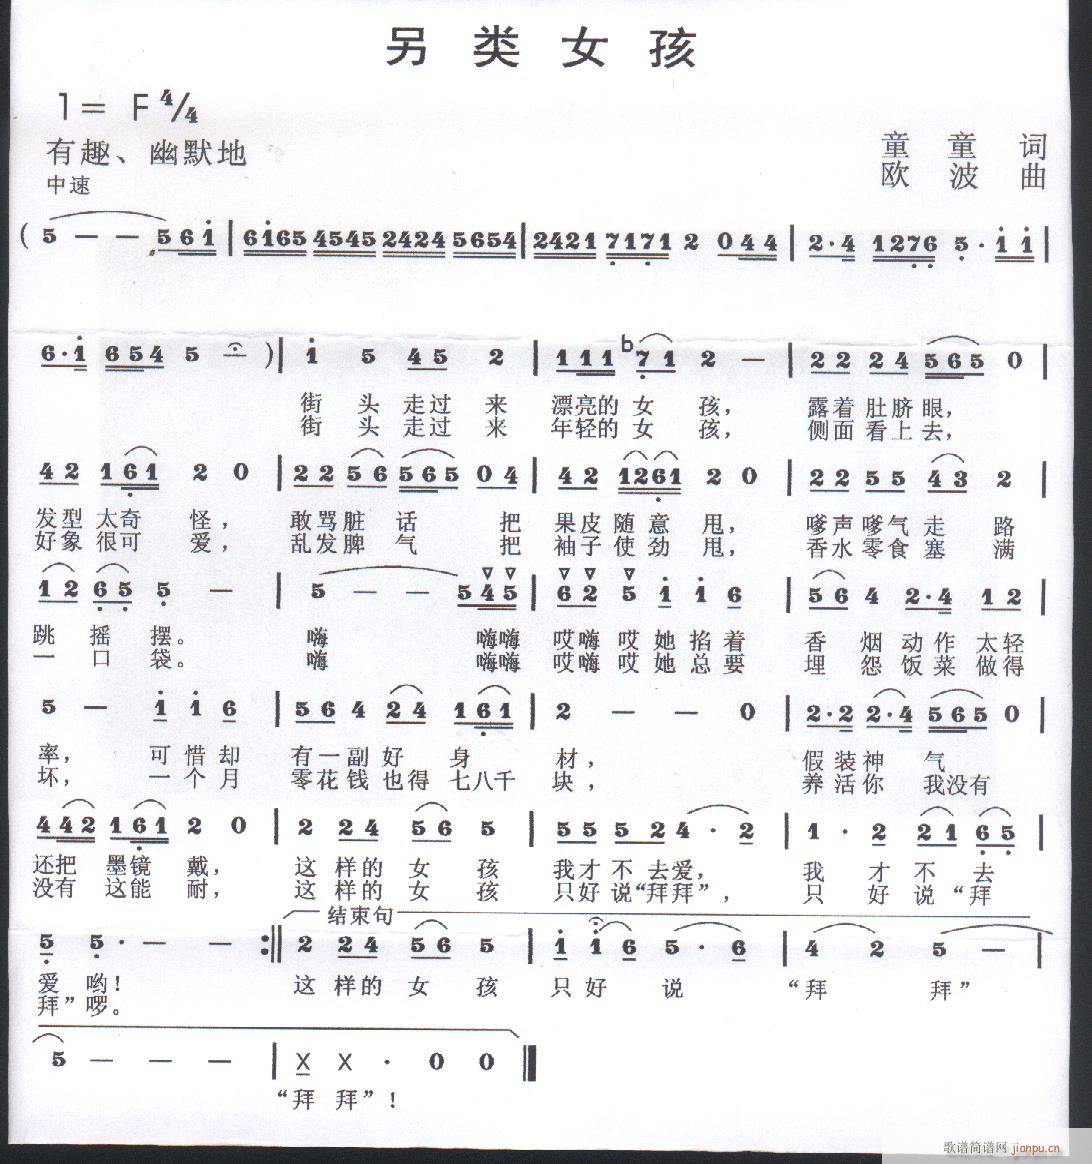 另类女孩
1= F 4/4
有趣、幽默地
童 童 词
中速
欧 波 曲
( 5 — — 5 6 1 | 6165 4545 2424 5654 | 2421 7171 2 044 | 2·4 1276 5·1 1 |
6·1 654 5 )| 1 5 45 2 | 111 b71 2 — | 22 24 565 0 |
街 头 走过 来 漂亮的 女 孩， 露着 肚脐 眼，
街 头 走过 来 年轻的 女 孩， 侧面 看上 去，
42 161 2 0 | 22 56 565 04 | 42 1261 2 0 | 22 55 43 2 |
发型 太奇 怪， 敢骂脏 话 把 果皮 随 意 甩， 嗲声嗲气 走 路
好象 很可 爱， 乱发脾 气 把 袖子 使 劲 甩， 香水零食 塞 满
12 65 5 — | 5 — — 545 | 62 5 1 1 6 | 56 4 2·4 12 |
跳 摇 摆。 嗨 嗨嗨 哎嗨 哎 她 掐着 香 烟 动作 太轻
一 口 袋。 嗨 嗨嗨 哎嗨 哎 她 总要 埋 怨 饭菜 做得
5 — 1 1 6 | 56 4 24 161 | 2 — — 0 | 2·2 2·4 565 0 |
率， 可 惜 却 有一 副 好 身 材， 假装神 气
坏， 一 个 月 零花 钱 也得 七八千 块， 养活你 我没有
442 161 2 0 | 2 24 56 5 | 55 524 · 2 | 1 · 2 21 65 |
还把 墨镜 戴， 这 样的 女 孩 我才 不 去爱， 我 才 不 去
没有 这能 耐， 这 样的 女 孩 只好 说“拜拜”， 只 好 说 “拜
结束句
5 5· — — :‖ 2 24 56 5 | 1 1 6 5·6 | 4 2 5 — |
爱 哟！ 这 样的 女 孩 只 好 说 “拜 拜”
拜”啰。
5 — — — | X X · 0 0 ‖
“拜 拜”！
歌谱简谱网 jianpu.cn